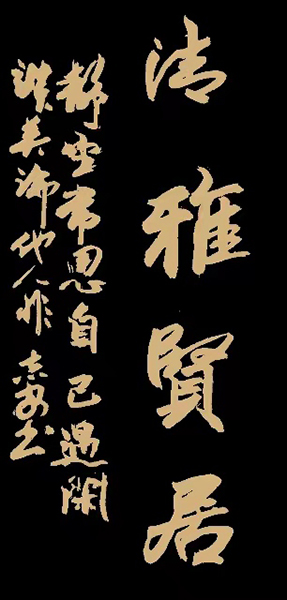 清雅賢居
靜坐常思自己過閑
談莫論他人非 书